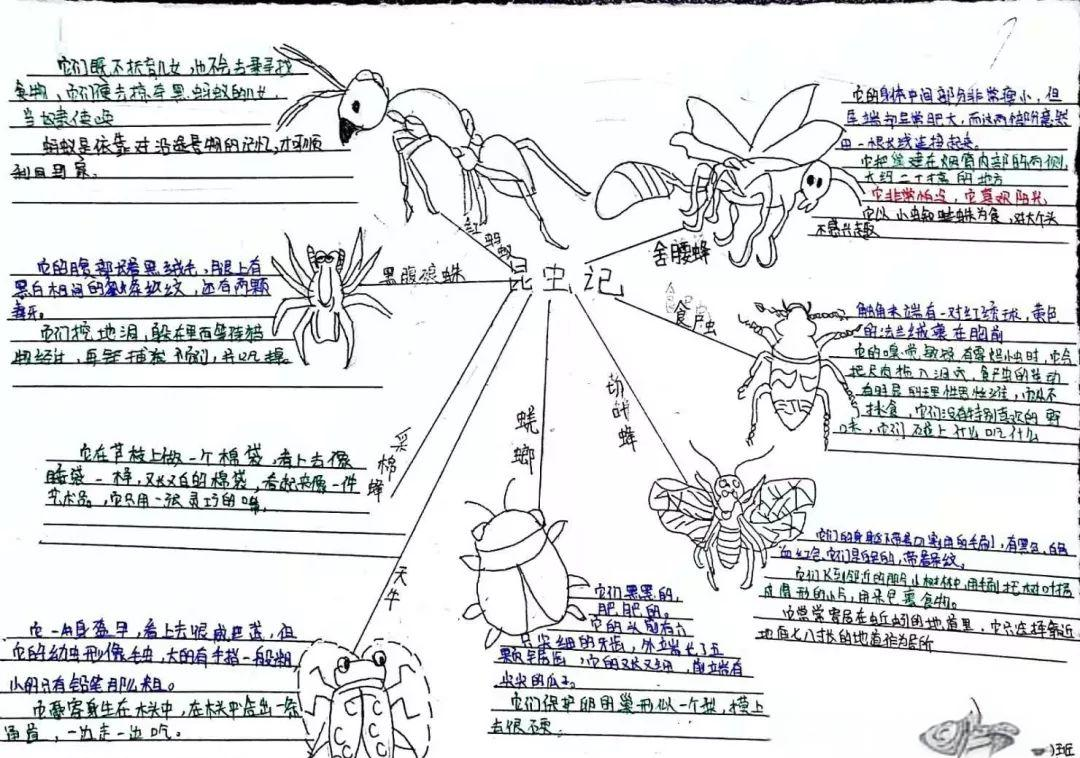 它们既不抚育儿女，也不会去寻找
食物，它们便去掠夺黑蚂蚁的儿女，
当
蚂蚁是依靠对沿途景物的记忆，才可顺
利
红蚂蚁
它的身体中间部分非常瘦小，但
尾端却异常肥大，而这两部分竟然
由一根长线连接起来。
它把巢建在烟窗内部的两侧，
大约二十 的地方
它非常怕冷，它喜欢阳光
它以小虫和蜘蛛为食，对大个头
不感兴趣
舍腰蜂
昆虫记
黑腹狼蛛
它的腹部长着黑绒毛，腿上有
黑白相间的 条纹，还有两颗
毒牙。
它们挖地洞，躲在里面等待猎
物经过，再 捕 它们，并吃掉。
食尸虫
触角末端有一对红绣球，黄色
的法兰绒裹在胸前
它的嗅觉敏锐，有 时，它会
把尸肉拖入洞穴，食尸虫的劳动
有明显的理性思维，而从不
挑食，它们没有特别喜欢的野
味，它们碰上什么吃什么
采棉蜂
它在芦枝上做一个棉袋，看上去像
睡袋一样，又长又白的棉袋，看起来像一件
艺术品，它只用一张灵巧的嘴。
蜣螂
切叶蜂
它们的身躯下带着 的毛刷，有黑色，白色
和红色，它们是 的，带着条纹。
它们飞到邻近的 树林中，用 把树叶据
成 形的小片，用来包裹食物。
它常常寄居在蚯蚓的地道里，它只选择靠近
地面七八 的地道作为居所
天牛
它们黑黑的，
肥肥的。
它的头前有六
只 细的牙齿，外边 长了五
颗 齿，它的又长又细，前端有
尖尖的爪子。
它们保护卵用巢形似一个梨，摸上
去很硬。
它一身盔甲，看上去很威武 ，但
它的幼虫形像毛虫，大的有手指一般粗，
小的只有铅笔那么粗。
它要寄生在木头中，在木头中啃出一条
通道，一边走一边吃。
班